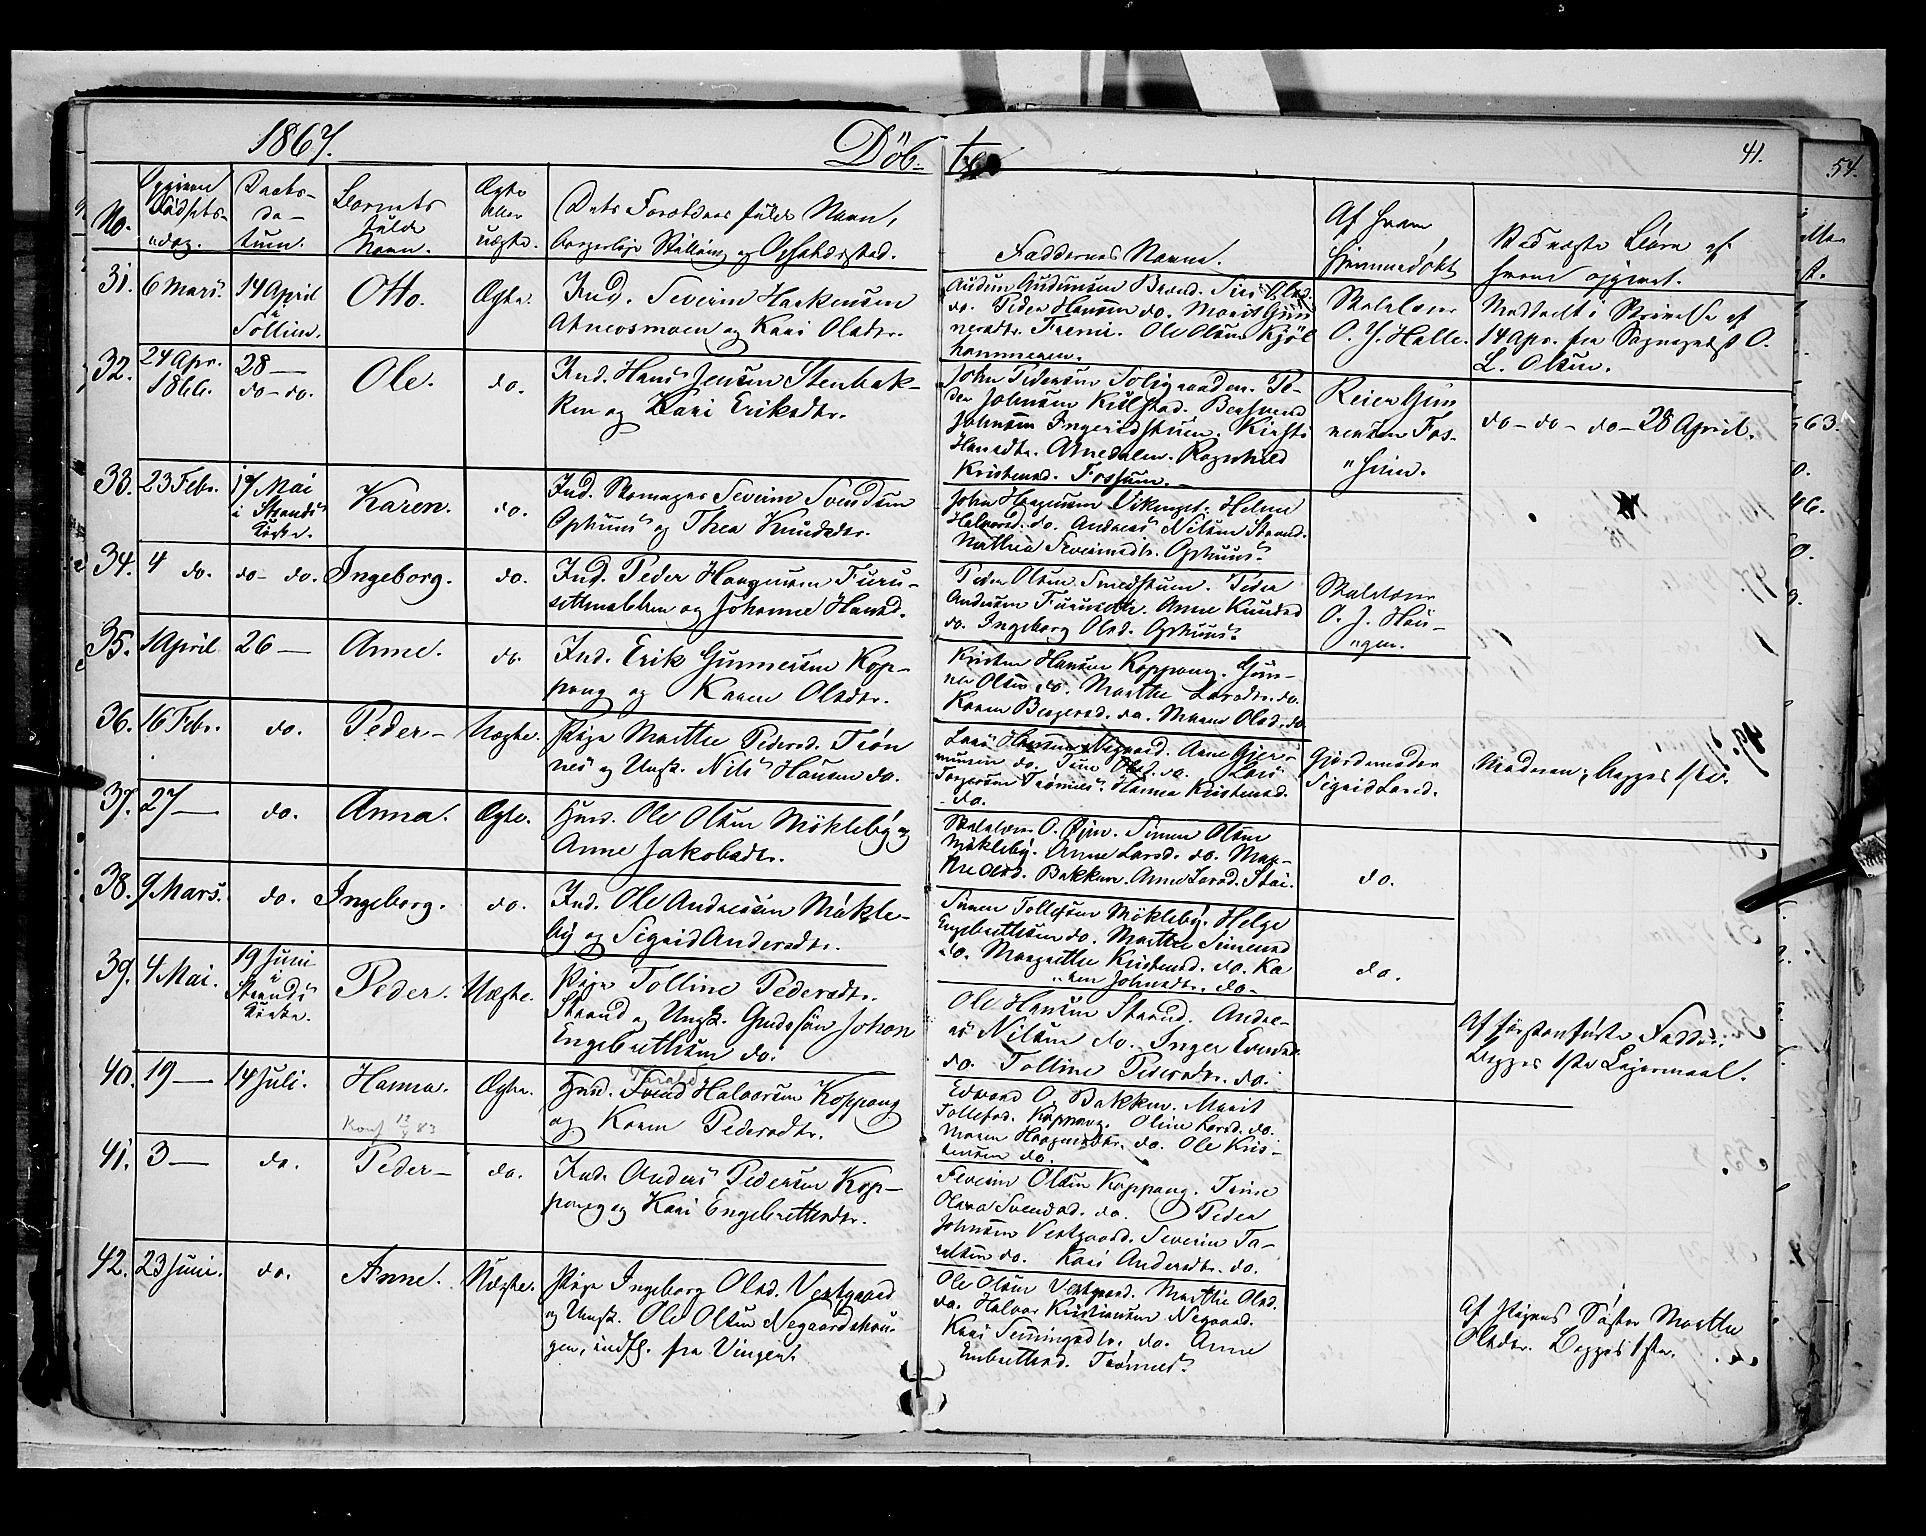 1867.
Døb-
te
41.
54.
No.
Opgiven
Fødsels-
dag.
Daabs-
da-
tum.
Barnets
fulde
Navn.
Ægte
eller
uægte.
Dets Forældres fulde Navn,
borgerlige Stilling og Opholdssted.
Faddernes Navne.
Af hvem
hjemmedøbt
Uægte Børn af
hvem opgivet.
31. 6 Mars. 14 April
i
Sollien.
Otto.
Ægte.
Ind. Severin Haakensen
Atneosmoen og Kari Olsdtr.
Audun Audunsen Bened. Siri Olsd.
do. Peder Hansen do. Marit Gun
nersdtr. Ole Olsen Kjöl
hammeren.
Skolelærer
O. J. Halle.
Meddelt i Skrivelse af
14 Apr. fra Sognepræst O.
L. Olsen.
32. 24 Apr.
1866.
28 —
do - do.
Ole.
do.
Ind. Hans Jensen Stenbak-
ken og Kari Eriksdtr.
John Pedersen Soligaarden. Pe-
der Johnsen Kilstad. Berhvend
Johnsen Ingeridstuen. Kirsti
Hansdtr. Atnedalen. Ragnhild
Kristensd. Fossum.
Reier Gun
nersen Fos-
heim.
do - do - do - 28 April.
33. 23 Febr. 17 Mai
i Strands
Kirke.
Karen.
do.
Ind. Skomager Severin Svendsen
Ophuus og Thea Knudsdtr.
John Haagensen Vikenget. Helene
Halvorsd. do. Andreas Nilsen Strand.
Mathia Severinsdtr. Ophuus.
34. 4 do. do - do. Ingeborg.
do.
Ind. Peder Haagensen Furu-
settmælen og Johanne Hansd.
Peder Olsen Smedstuen. Peder
Andersen Furusette. Anne Knudsd
do. Ingeborg Olsd. Ophuus.
Skolelærer
O. J. Hau-
gen.
35. 1 April 26 — Anne.
do.
Ind. Erik Gunnersen Kop-
pang og Karen Olsdtr.
Kristen Hansen Koppang. Gun-
ner Olsen do. Marthe Larsdtr. do.
Karen Birgersd. do. Maren Olsd. do.
36. 16 Febr. do. Peder - Uægte.
Pige Marthe Pedersd. Trøn
nes og Ungk. Nils Hansen do.
Lars Hansen Negaard. Arne Gjer-
mundsen do. Trine Olsd. do. Lars
Torgersen Trønnes. Hanna Kristensd.
do.
Gjordemoder
Sigrid Larsd.
Moderen; begges 1ste.
37. 27 — do. Anna. Ægte.
Husm. Ole Olsen Møkleby og
Anne Jakobsdtr.
Skolelærer O. Øjen. Simen Olsen
Møkleby. Anne Larsd. do. Mar-
the Olsd. Bakken. Anne Larsd. Stai.
do.
38. 9 Mars. do. Ingeborg. do.
Ind. Ole Andresen Møkle-
by og Sigrid Andersdtr.
Simen Tollefsen Møkleby. Helge
Engebrettsen do. Marthe Simensd
do. Margrethe Kristensd. do. Ka
ren Johnsdtr. do.
do.
39. 4 Mai. 19 Juni
i
Strands
Kirke.
Peder. Uægte.
Pige Tolline Pedersdtr.
Strand og Ungk. Gudssøn Johan
Engebrettsen do.
Ole Hansen Strand. Andre-
as Nilsen do. Inger Evensd.
do. Tolline Pedersdtr. do.
Af førstanførte Fadder:
Begges 1ste Leiermaal.
40. 19 — 14 Juli. Hanna. Ægte.
Konf 12/8 83
Husm. Svend Halvorsen Koppang
og Karen Pedersdtr.
Edvard O. Bakken. Marit
Tollefsd. Koppang. Oline Larsd. do.
Maren Haagensdtr. do. Ole Kris-
tensen do.
41. 3 — do. Peder - do.
Ind. Anders Pedersen Kop-
pang og Kari Engebrettsdtr.
Severin Olsen Koppang. Trine
Olava Svendsd. do. Peder
Johnsen Vestgaard. Severin Ta-
raldsen do. Kari Andersdtr. do.
42. 23 Juni. do. Anne. Uægte.
Pige Ingeborg Olsd. Vestgaard
og Ungk. Ole Olsen Negaardshau-
gen, indfl. fra Vinger.
Ole Olsen Vestgaard. Marthe Olsd.
do. Halvor Kristiansen Negaard.
Kari Semingsdtr. do. Anne
Embretsd. Trønnes.
Af Pigens Søster Marthe
Olsdtr. Begges 1ste.